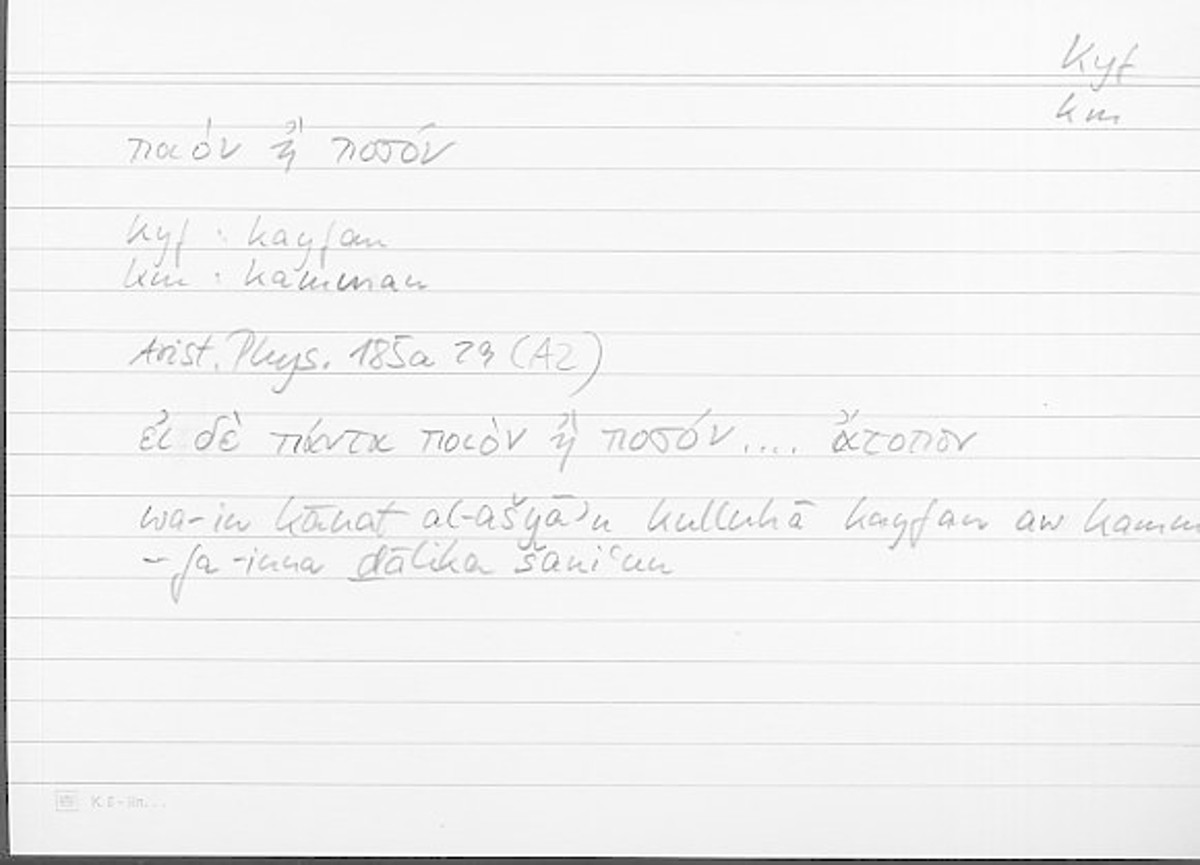 Kyf
km
ποιόν ἢ ποσόν
kyf : kayfan
km : kamman
Arist. Phys. 185a 29 (A2)
εἰ δὲ πάντα ποιὸν ἢ ποσόν .... ἄτοπον
wa-in kānat al-ašyāʾu kulluhā kayfan aw kamm
– fa-inna ḏālika šaniʿun